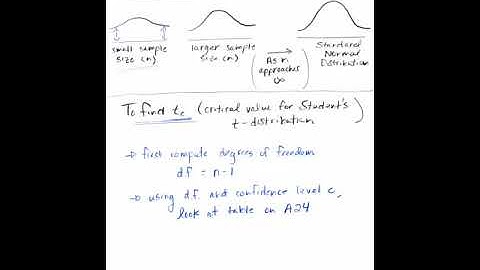 small sample
size (n)
larger sample
size (n)
As n
approaches
∞
Standard
Normal
Distribution
To find tc (critical value for Student's
t-distribution)
→ first compute degrees of freedom
df = n-1
→ using d.f. and confidence level c,
look at table on A24